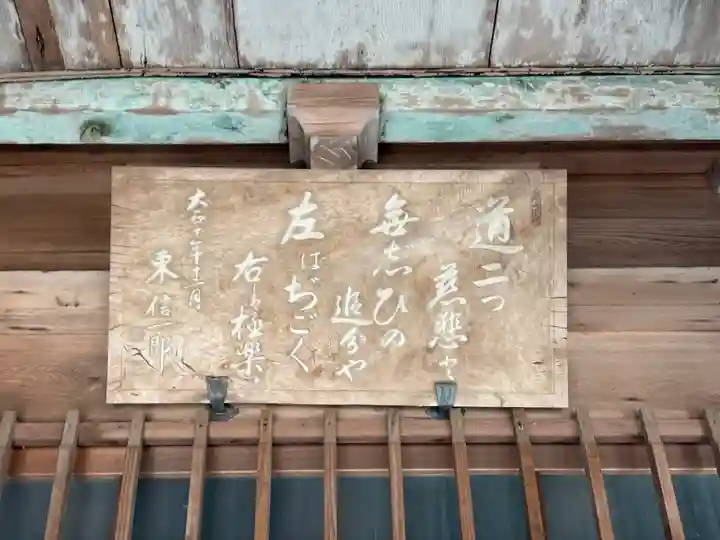 道二つ
慈悲と
無じひの
追分や
左はぢごく
右は極楽
大正十年十二月
東信一